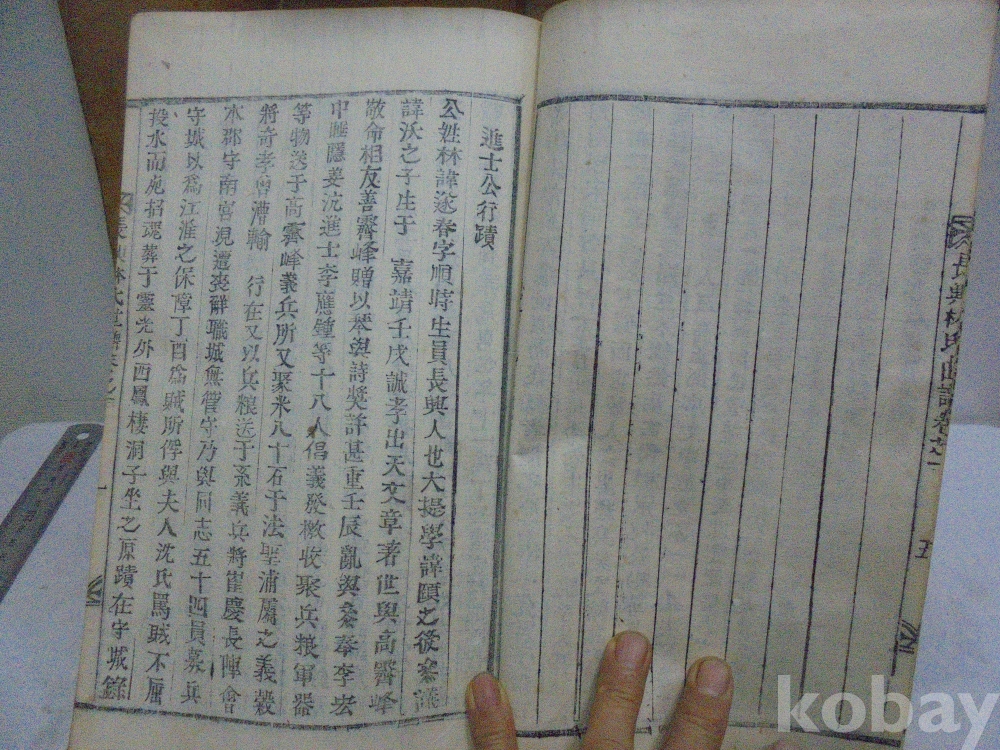 長興林氏世譜卷之一
五
進士公行蹟
公姓林諱遂春字順時生員長興人也大提學諱頤之後參議
諱沃之子生于　嘉靖壬戌誠孝出天文章著世與高霽峰
敬命相友善霽峰贈以琴與詩獎許甚重壬辰亂與參奉李宏
中睡隱姜沆進士李應鍾等十八人倡義發檄收聚兵粮軍器
等物送于高霽峰義兵所又聚米八十石于法聖浦屬之義穀
將奇孝曾漕輸　行在又以兵粮送于本義兵將崔慶長陣會
本郡守南宮涀遭喪辭職城無管守乃與同志五十四員募兵
守城以爲江淮之保障丁酉爲賊所俘與夫人沈氏罵賊不屈
投水而死招魂葬于靈光外西鳳棲洞子坐之原蹟在守城錄
kobay